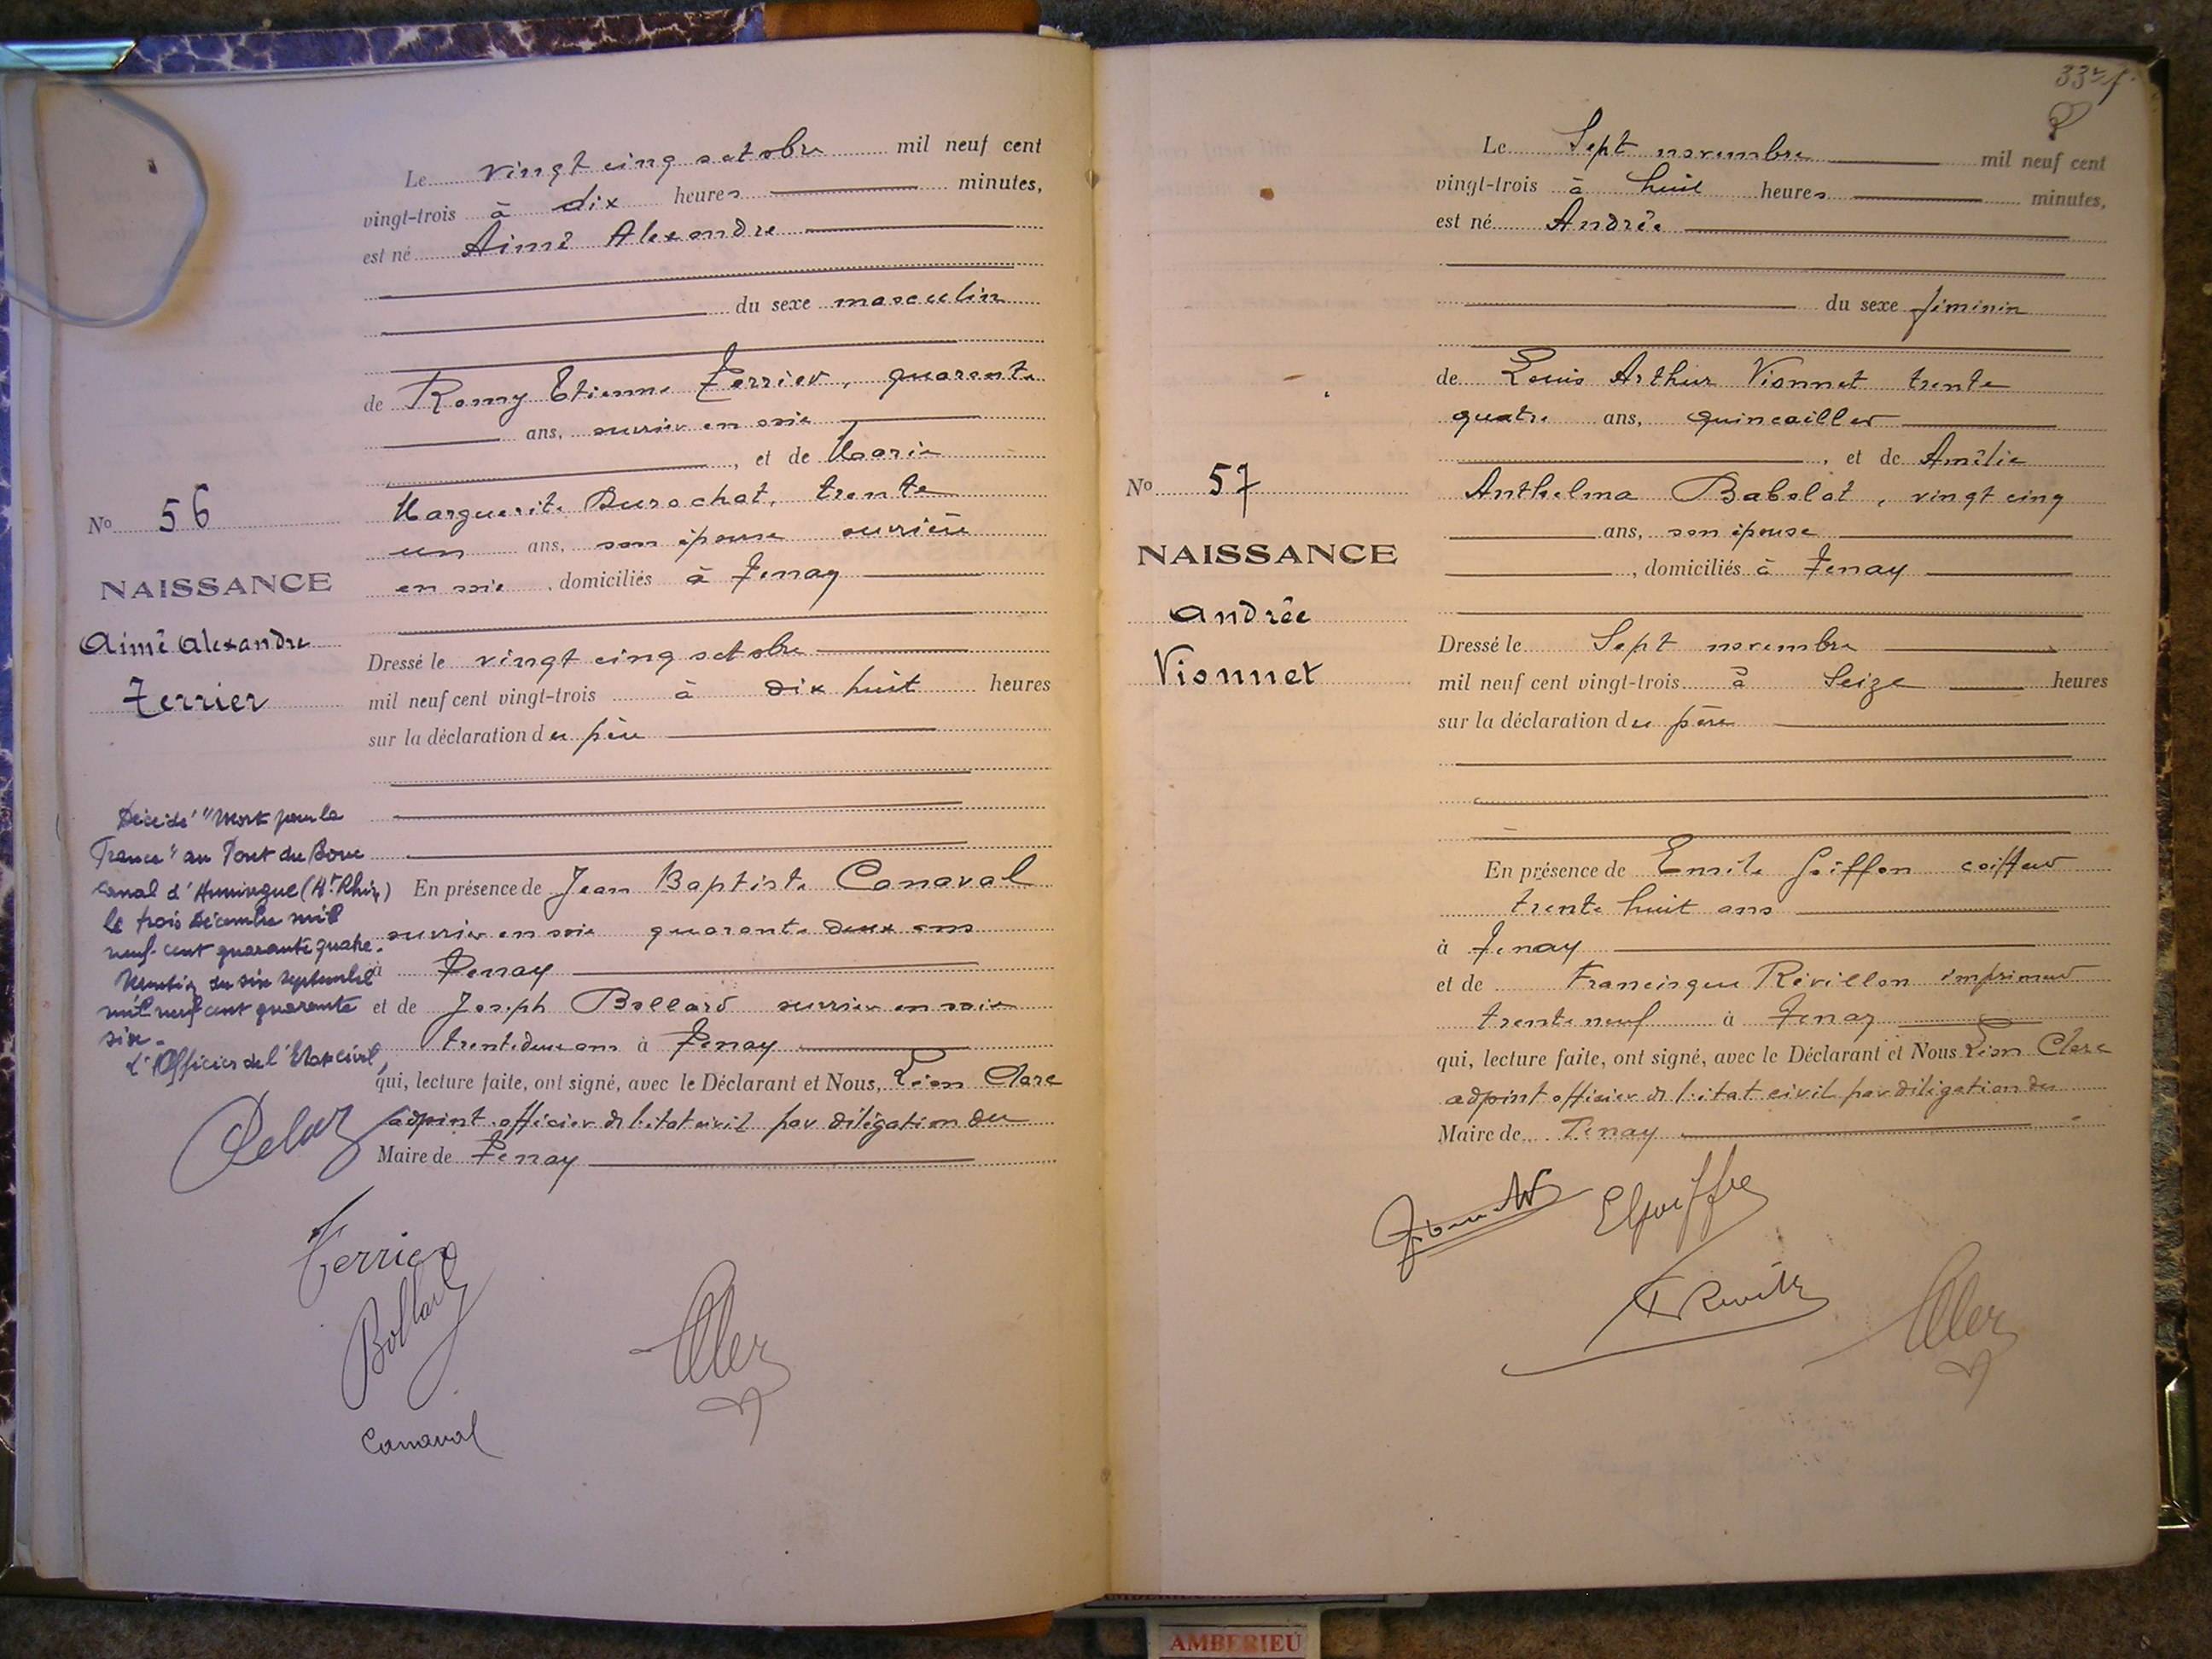 Le vingt cinq octobre mil neuf cent
vingt-trois à dix heures minutes,
est né Aimé Alexandre
du sexe masculin
de Romy Etienne Terrier, quarante
ans, ouvrier en soie
, et de Marie
Marguerite Durochat, trente
un ans, son épouse ouvrière
en soie, domiciliés à Tenay
Dressé le vingt cinq octobre
mil neuf cent vingt-trois à dix huit heures
sur la déclaration du père
En présence de Jean Baptiste Canaval
ouvrier en soie quarante deux ans
à Tenay
et de Joseph Bollard ouvrier en soie
trente deux ans à Tenay
qui, lecture faite, ont signé, avec le Déclarant et Nous, Léon Clerc
adjoint officier de l'état civil par délégation du
Maire de Tenay
No 56
NAISSANCE
Aimé Alexandre
Terrier
Décédé "Mort pour la
France" au Pont du Bouc
Canal d'Huningue (Ht Rhin)
le trois décembre mil
neuf cent quarante quatre.
Mention du six septembre
mil neuf cent quarante
six.
L'Officier de l'Etat civil,
Terrier
Bollard
Canaval
Clerc
33
Le Sept novembre mil neuf cent
vingt-trois à huit heures minutes,
est né Andrée
du sexe féminin
de Louis Arthur Vionnet trente
quatre ans, quincailler
, et de Amélie
Anthelma Babolat, vingt cinq
ans, son épouse
, domiciliés à Tenay
Dressé le Sept novembre
mil neuf cent vingt-trois à Seize heures
sur la déclaration du père
En présence de Emile Goiffon coiffeur
trente huit ans
à Tenay
et de Francisque Révillon imprimeur
trente neuf à Tenay
qui, lecture faite, ont signé, avec le Déclarant et Nous Léon Clerc
adjoint officier de l'état civil par délégation du
Maire de Tenay
No 57
NAISSANCE
Andrée
Vionnet
Clerc
AMBERIEU